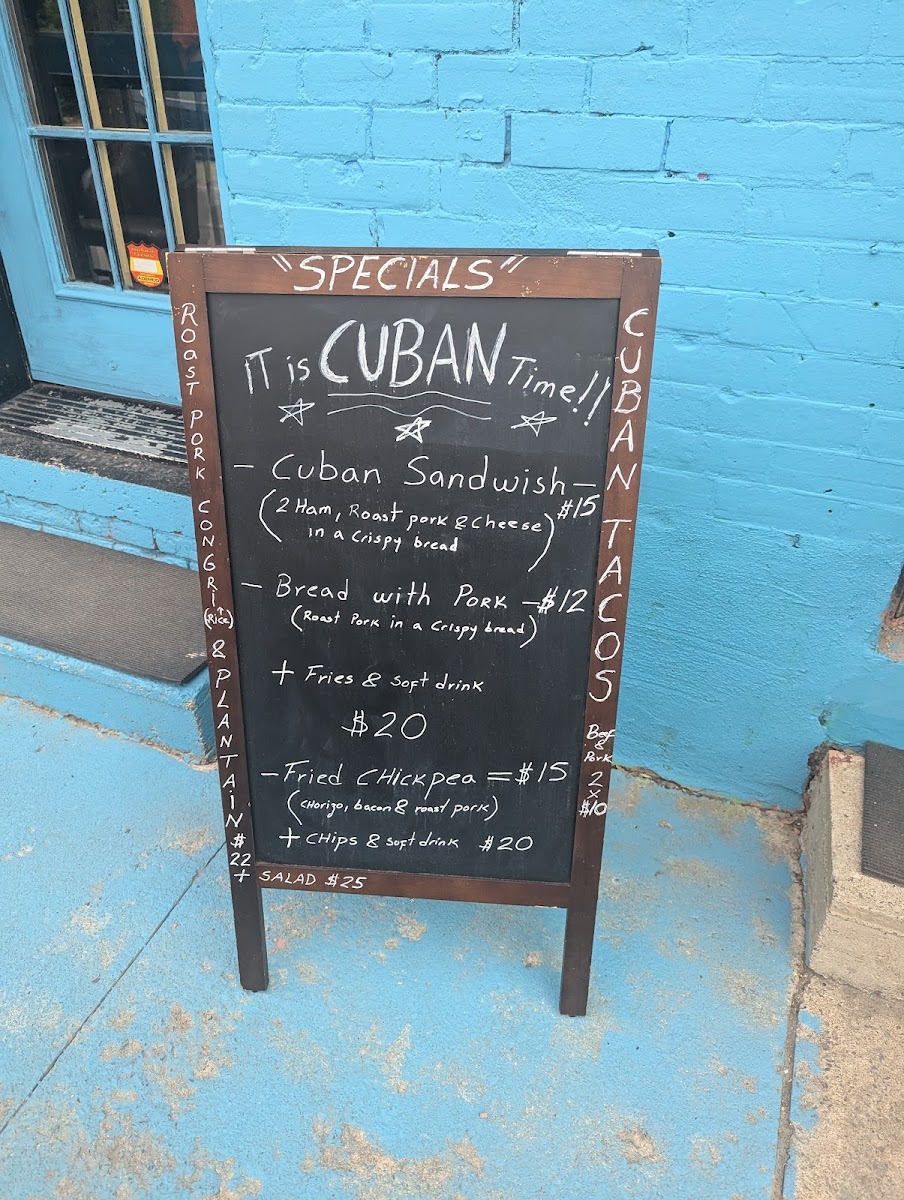 "SPECIALS"
IT is CUBAN Time!!
- Cuban Sandwish - $15
(2 Ham, Roast pork & Cheese
in a crispy bread)
- Bread with PORK - $12
(Roast Pork in a Crispy bread)
+ Fries & soft drink
$20
- Fried CHICKpea = $15
(CHorizo, bacon & roast pork)
+ CHIPS & soft drink $20
ROAST PORK CONGRI (Rice) & PLANTAIN $22
+ SALAD $25
CUBAN TACOS
Beef
&
Pork
2
x
$10